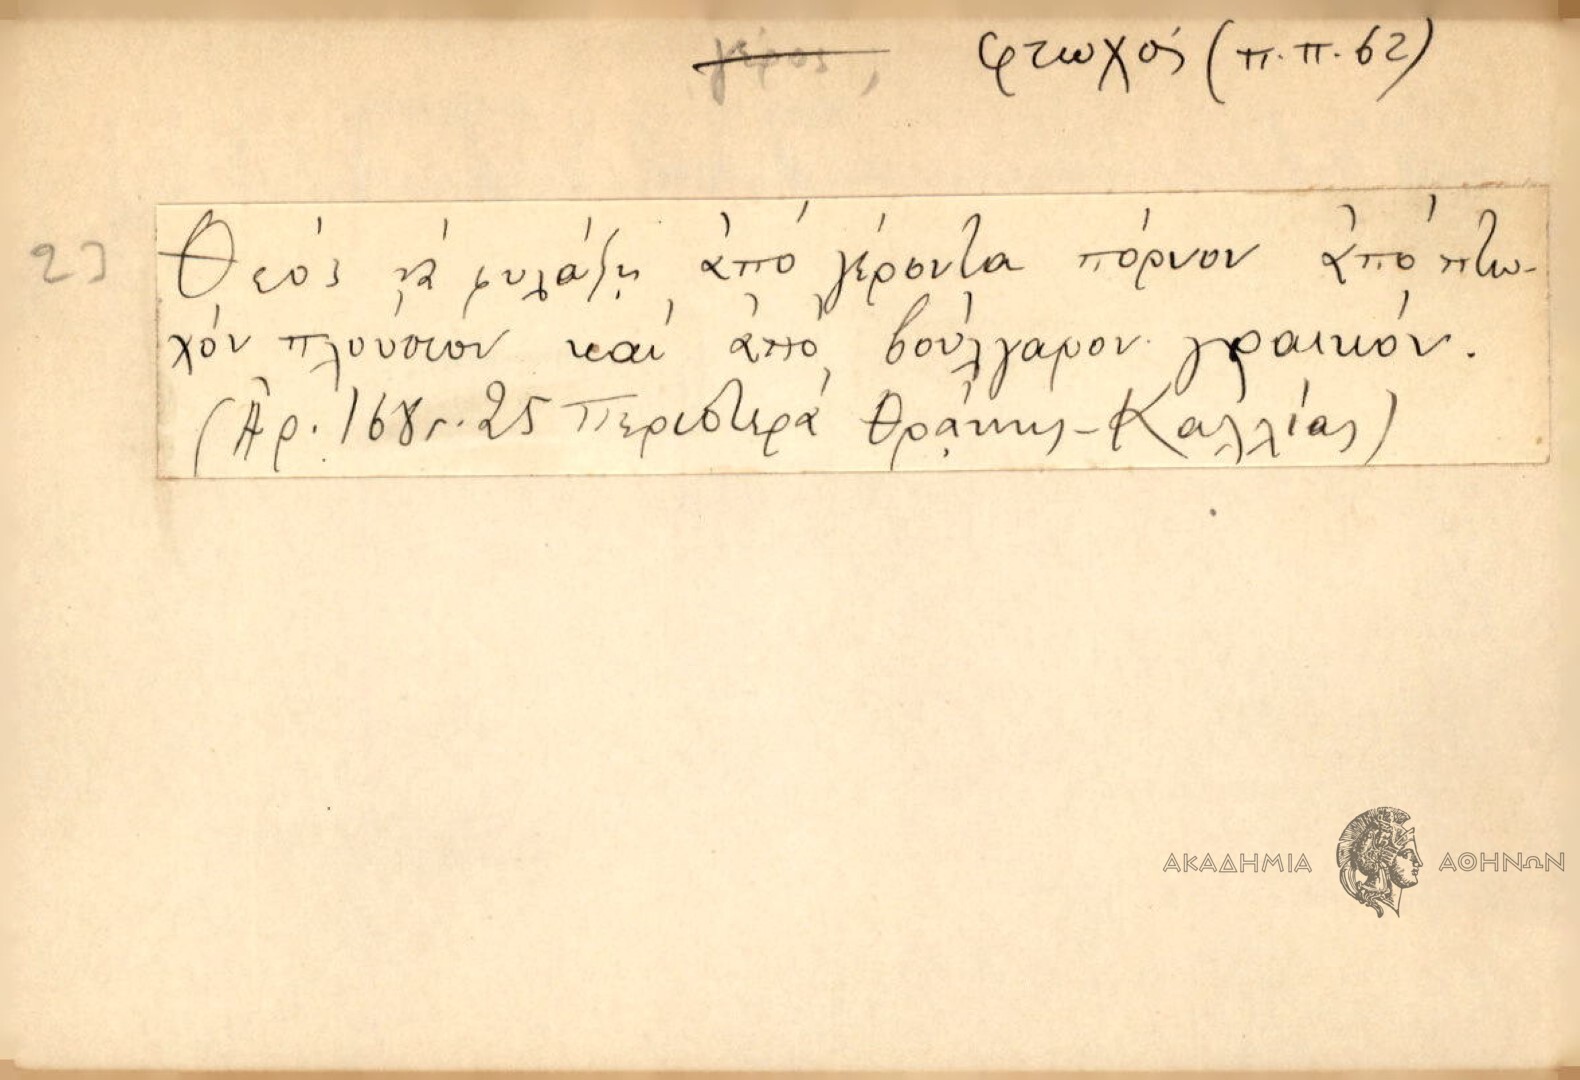 γέρος, φτωχός (π.π. 62)
23 Θεός νὰ φυλάξῃ ἀπὸ γέροντα πόρνον ἀπὸ πτω-
χόν πλούσιον καὶ ἀπὸ βούλγαρον γραικόν.
(Ἀρ. 168 σ. 25 Περιστερά Θρᾴκης - Καλλίας)
ΑΚΑΔΗΜΙΑ ΑΘΗΝΩΝ